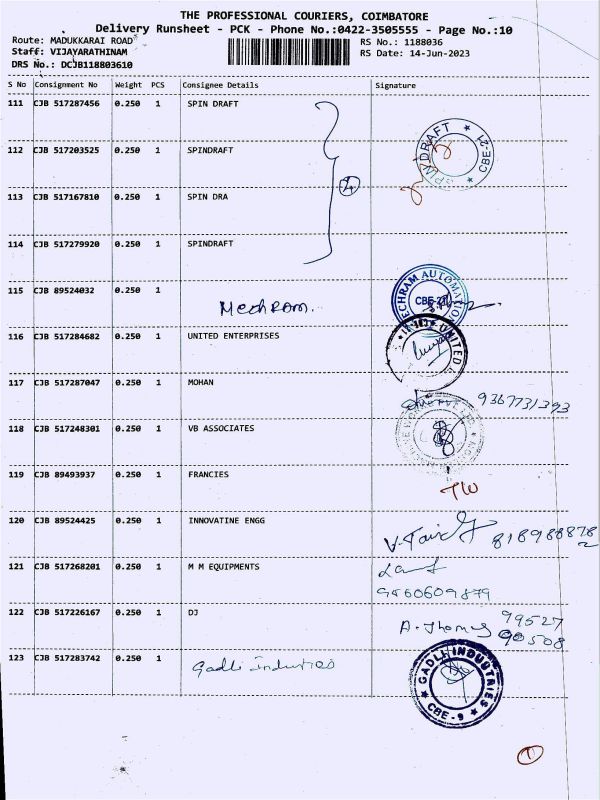 THE PROFESSIONAL COURIERS, COIMBATORE
Delivery Runsheet - PCK - Phone No.:0422-3505555 - Page No.:10
Route: MADUKKARAI ROAD
RS No.: 1188036
Staff: VIJAYARATHINAM
RS Date: 14-Jun-2023
DRS No.: DCJB118803610
S No Consignment No Weight PCS Consignee Details Signature
111 CJB 517287456 0.250 1 SPIN DRAFT
112 CJB 517203525 0.250 1 SPINDRAFT
SPINDRAFT * CBE-21 *
113 CJB 517167810 0.250 1 SPIN DRA
4
114 CJB 517279920 0.250 1 SPINDRAFT
115 CJB 89524032 0.250 1
Mechram.
MECHRAM AUTOMATION CBE-21
116 CJB 517284682 0.250 1 UNITED ENTERPRISES
UNITED
117 CJB 517287047 0.250 1 MOHAN
9367731393
118 CJB 517248301 0.250 1 VB ASSOCIATES
119 CJB 89493937 0.250 1 FRANCIES
120 CJB 89524425 0.250 1 INNOVATINE ENGG
8189888782
121 CJB 517268201 0.250 1 M M EQUIPMENTS
122 CJB 517226167 0.250 1 DJ
A. Thomas 99527
90508
123 CJB 517283742 0.250 1 Gadli industries
GADLI INDUSTRIES * CBE-9 *
1